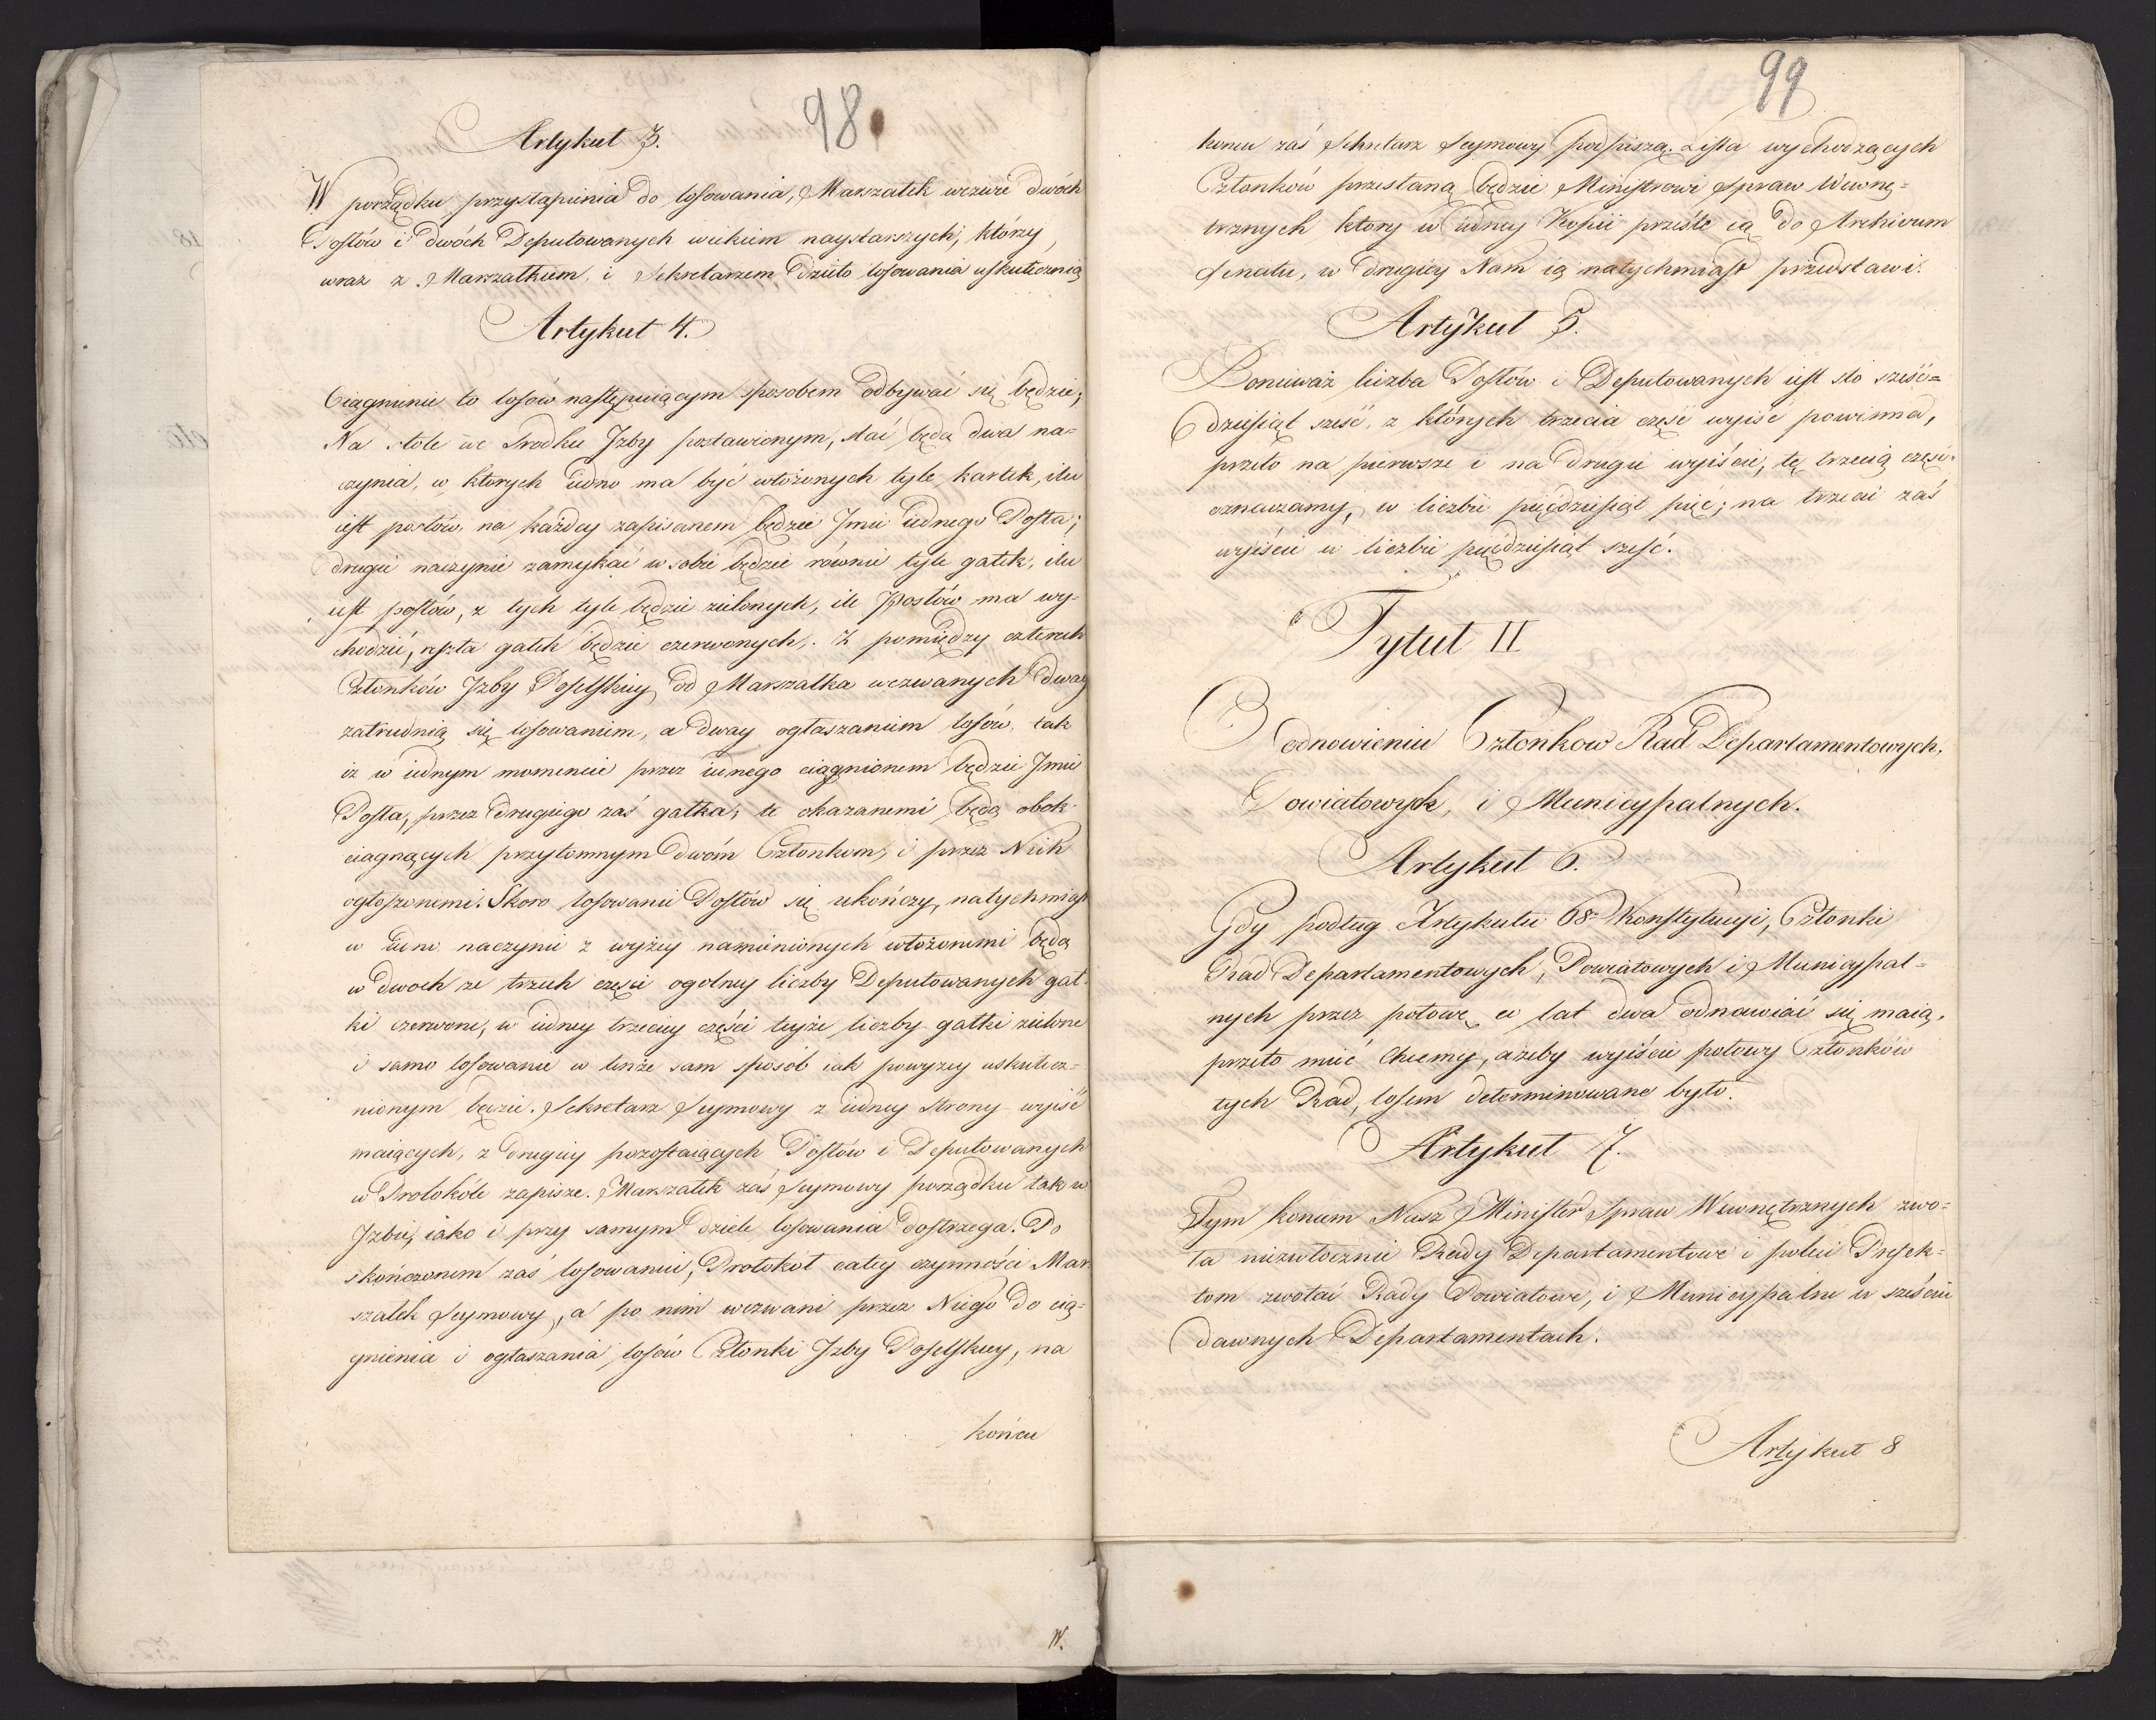 98
Artykuł 3.
W porządku przystąpienia do losowania, Marszałek wezwie dwóch
Posłów i dwóch Deputowanych wiekiem naystarszych, którzy
wraz z Marszałkiem, i Sekretarzem, dzieło losowania uskutecznią
Artykuł 4.
Ciągnienie to losów następuiącym sposobem odbywać się będzie;
Na stole we Srodku Jzby postawionym, stać będą dwa na=
czynia, w ktorych iedno ma być włożonych tyle kartek, ilu
iest posłów, na każdey zapisanem będzie Jmie iednego Posła;
drugie naczynie zamykać w sobie będzie rownie tyle gałek, ilu
iest posłów, z tych tyle będzie zielonych, ile posłów ma wy-
chodzić, reszta gałek będzie czerwonych. Z pomiędzy czterech
Członków Jzby Poselskiey od Marszałka wezwanych dway
zatrudnią się losowaniem, a dway ogłaszaniem losów, tak
iż w iednym momencie przez iednego ciągnionem będzie Jmie
Posła, przez drugiego zaś gałka; te okazanemi będą obok
ciągnących przytomnym dwóm Członkom, i przez Nich
ogłoszonemi. Skoro losowanie Posłów się ukończy, natychmiast
w iedno naczynie z wyżey namienionych włożonemi będą
w dwoch ze trzech części ogolney liczby Deputowanych gał-
ki czerwone, w iedney trzeciey części teyże liczby gałki zielone
i samo losowanie w tenże sam sposób iak powyzey uskutecz=
nionym będzie. Sekretarz Seymowy z iedney strony wyjść
maiących, z drugiey pozostaiących Posłów i Deputowanych
w Protokóle zapisze. Marszałek zaś Seymowy porządku tak w
Jzbie, iako i przy samym dziele losowania dostrzega. Po
skończonem zaś losowaniu, Protokół całey czynności Mar
szałek Seymowy, a po nim wezwani przez Niego do cią-
gnienia i ogłaszania losów Członki Jzby Poselskiey, na
końcu
W.
99
koncu zaś Sekretarz Seymowy podpiszą. Lista wychodzących
Członków przesłaną będzie Ministrowi Spraw Wewnę=
trznych ktory w iedney Kopii prześle ią do Archivum
Senatu, w drugiey Nam ią natychmiast przedstawi.
Artykuł 5.
Ponieważ liczba Posłów i Deputowanych iest sto sześć=
dziesiąt sześć, z których trzecia część wyiść powinna,
przeto na pierwsze i na drugie wyiście, tę trzecią część
oznaczamy, w liczbie pięćdziesiąt pięć; na trzecie zaś
wyiście w liczbie pięćdziesiąt sześć.
Tytuł II
O odnowieniu Członkow Rad Departamentowych,
Powiatowych, i Municypalnych.
Artykuł 6.
Gdy podług Artykułu 68º Konstytucyi, Członki
Rad Departamentowych, Powiatowych i Municypal=
nych przez połowę co lat dwa odnawiać się maią,
przeto mieć chcemy, ażeby wyiście połowy Członków
tych Rad, losem determinowane było.
Artykuł 7.
Tym koncem Nasz Minister Spraw Wewnętrznych zwo=
ła niezwłocznie Rady Departamentowe i poleci Prefek=
tom zwołać Rady Powiatowe, i Municypalne w sześciu
dawnych Departamentach.
Artykuł 8